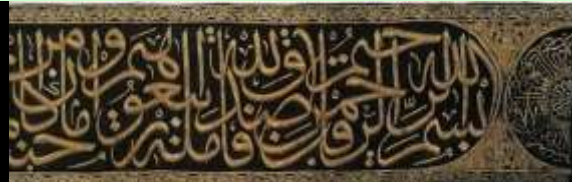 بسم الله الرحمن الرحيم قل صدق الله فاتبعوا ملة إبرهيم حنيفا وما كان من